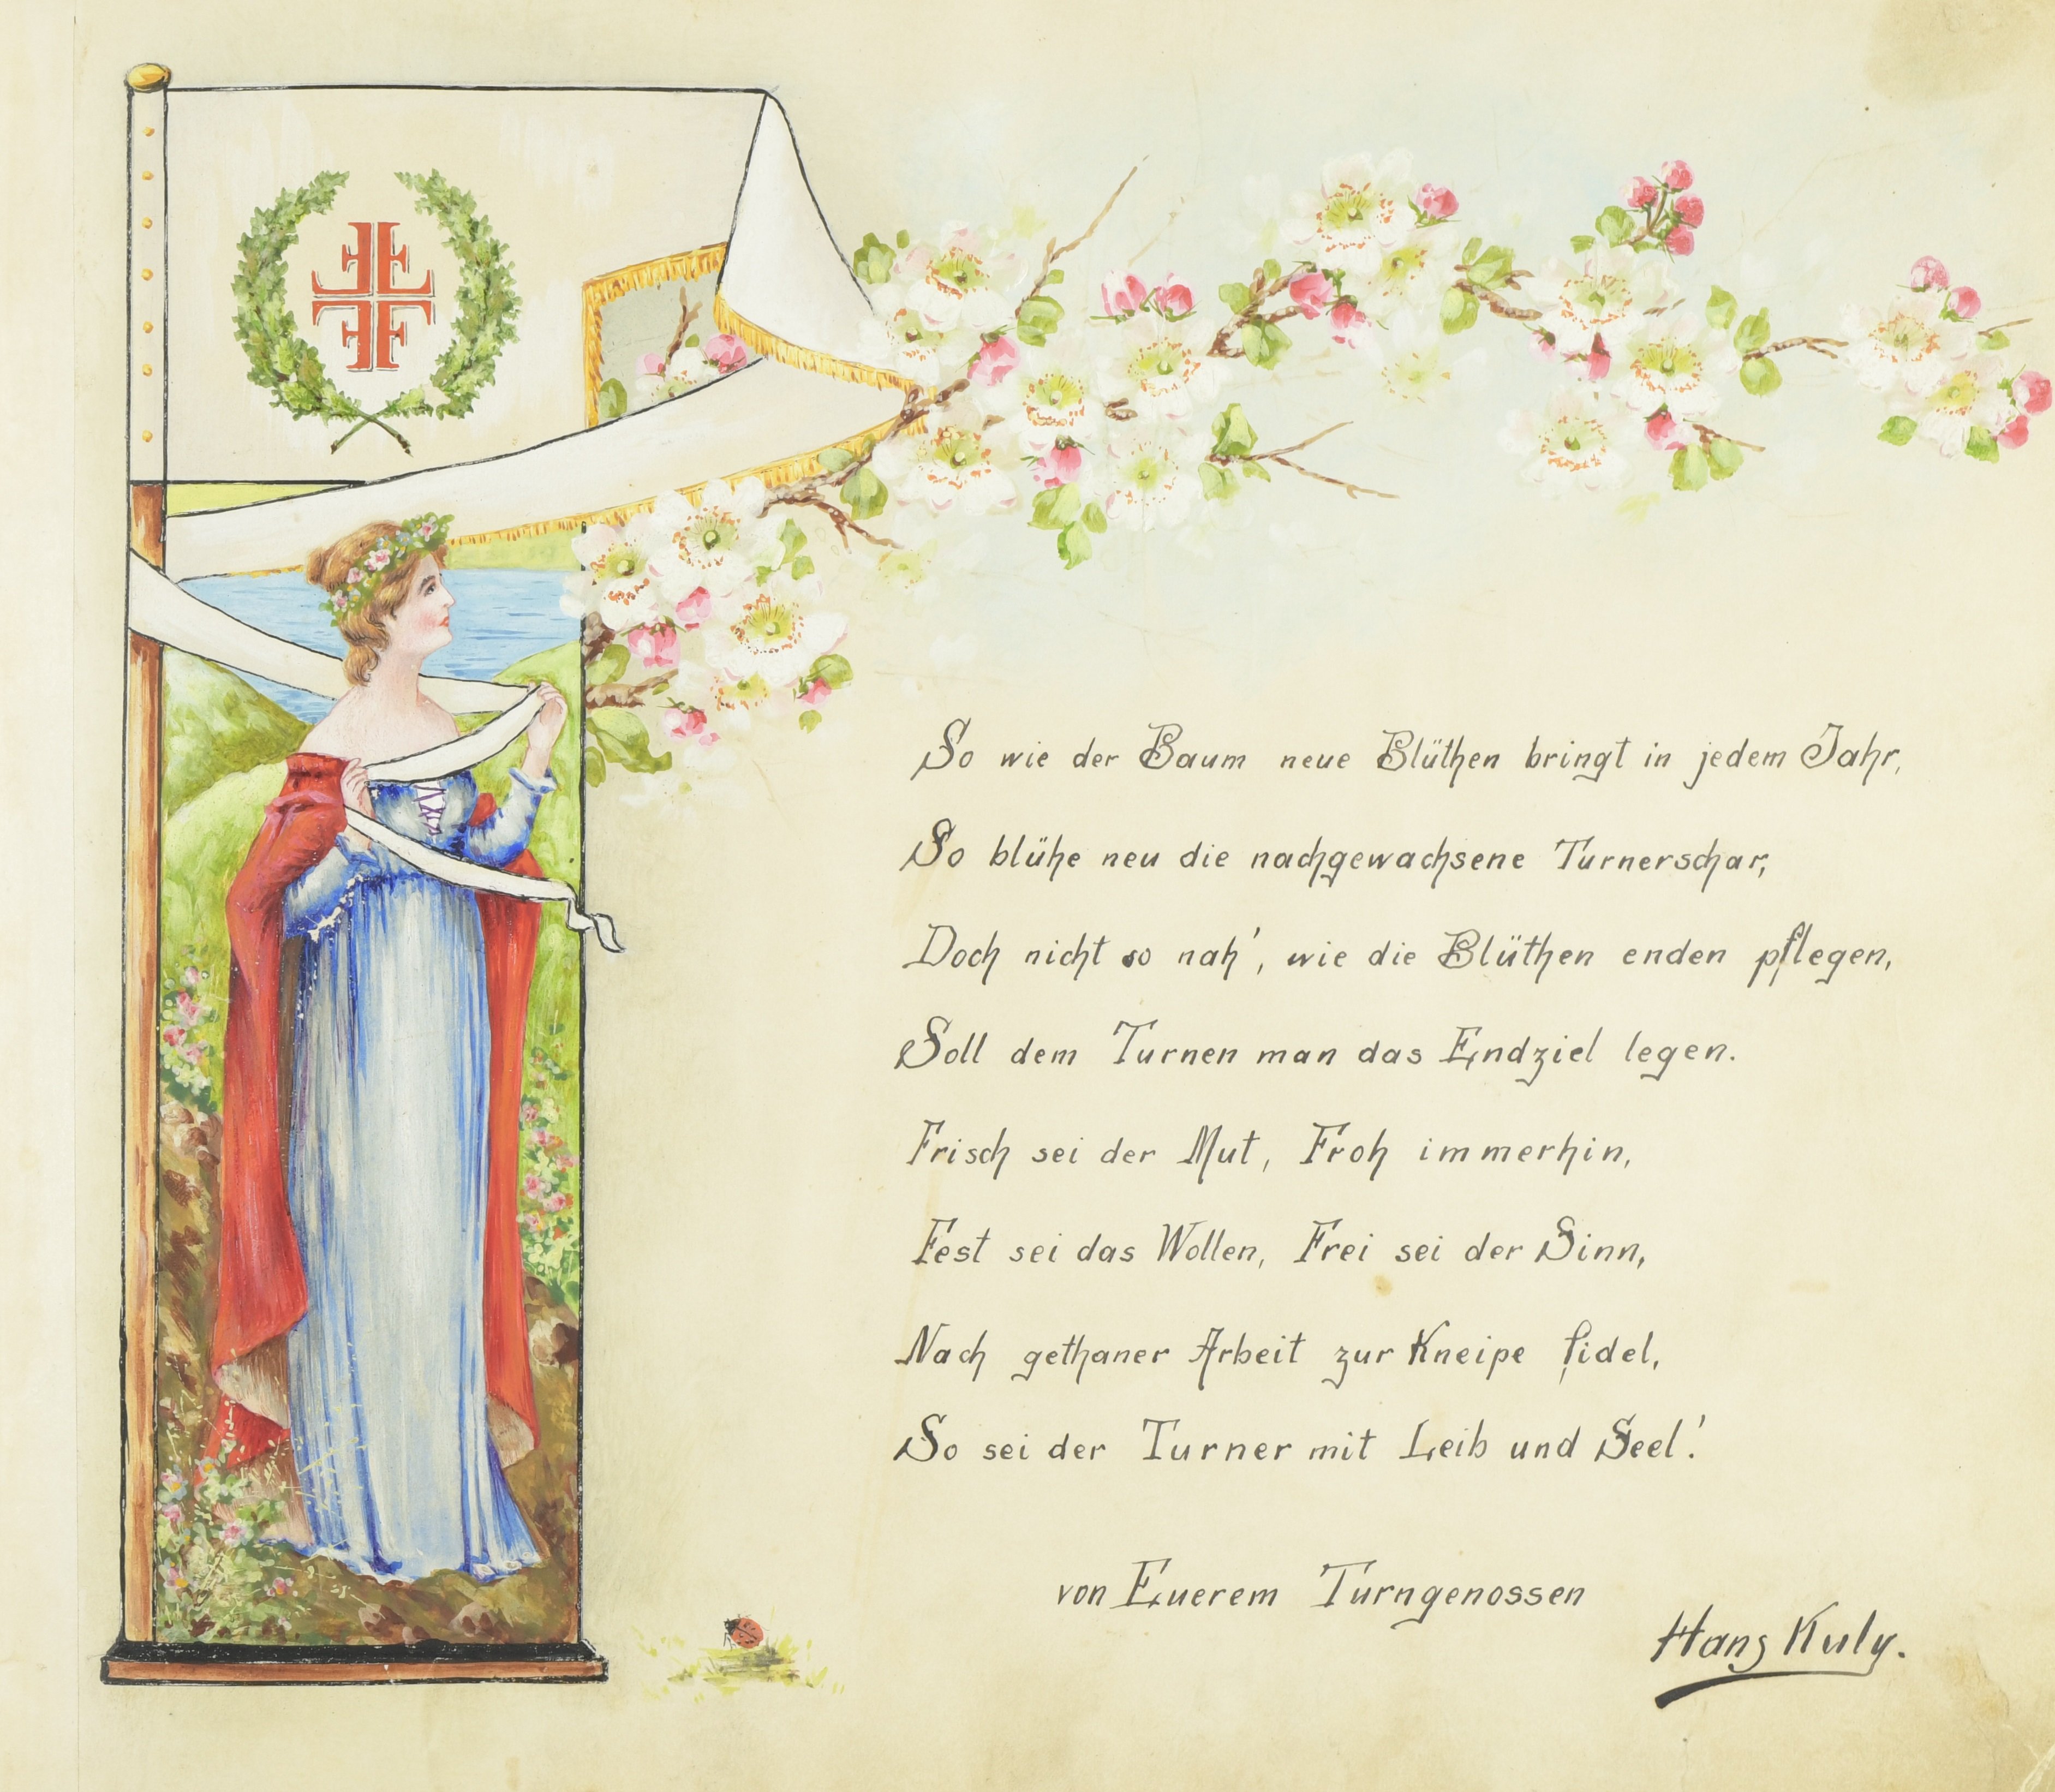 So wie der Baum neue Blüthen bringt in jedem Jahr,
So blühe neu die nachgewachsene Turnerschar,
Doch nicht so nah', wie die Blüthen enden pflegen,
Soll dem Turnen man das Endziel legen.
Frisch sei der Mut, Froh immerhin,
Fest sei das Wollen, Frei sei der Sinn,
Nach gethaner Arbeit zur Kneipe fidel,
So sei der Turner mit Leib und Seel!
von Euerem Turngenossen
Hans Kuly.